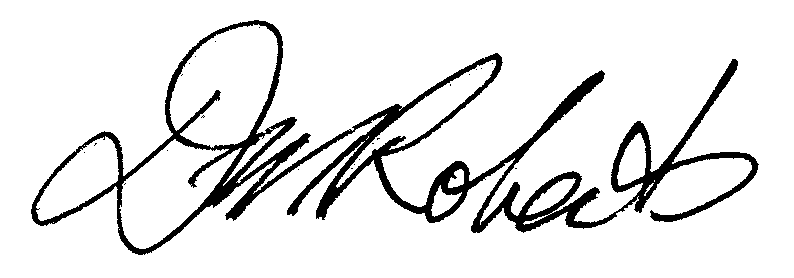 DM Roberts